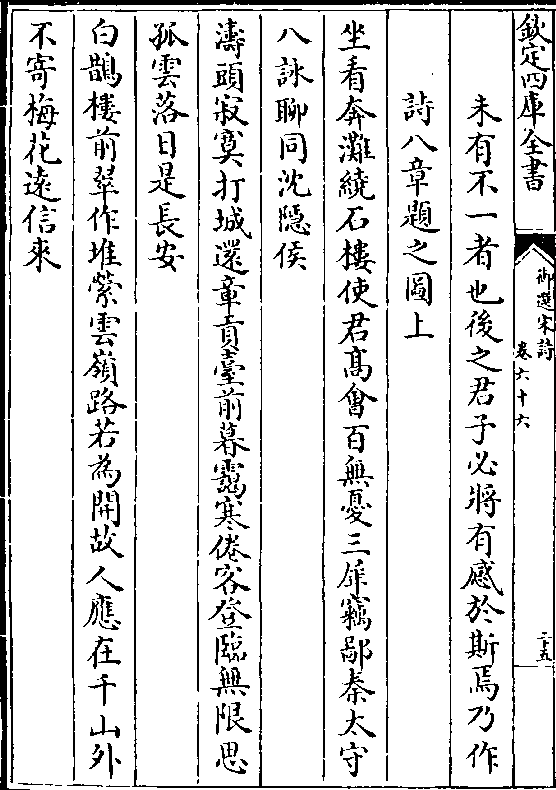 欽定四庫全書
御選宋詩
卷六十六
二十五
未有不一者也後之君子必將有感於斯焉乃作
詩八章題之圖上
坐看奔灘繞石樓使君髙㑹百無憂三犀竊鄙秦太守
八詠聊同沈隠侯
濤頭寂寞打城還章貢臺前暮靄寒倦客登臨無限思
孤雲落日是長安
白鵲樓前翠作堆縈雲嶺路若為開故人應在千山外
不寄梅花逺信來